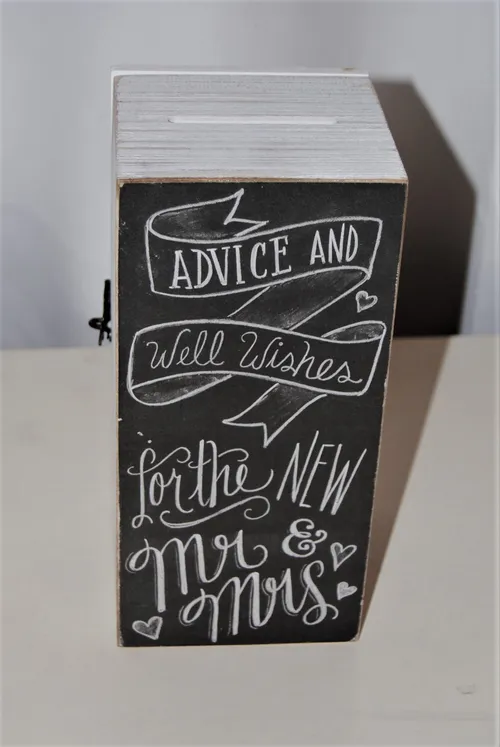 ADVICE AND
Well Wishes
for the NEW
Mr &
Mrs